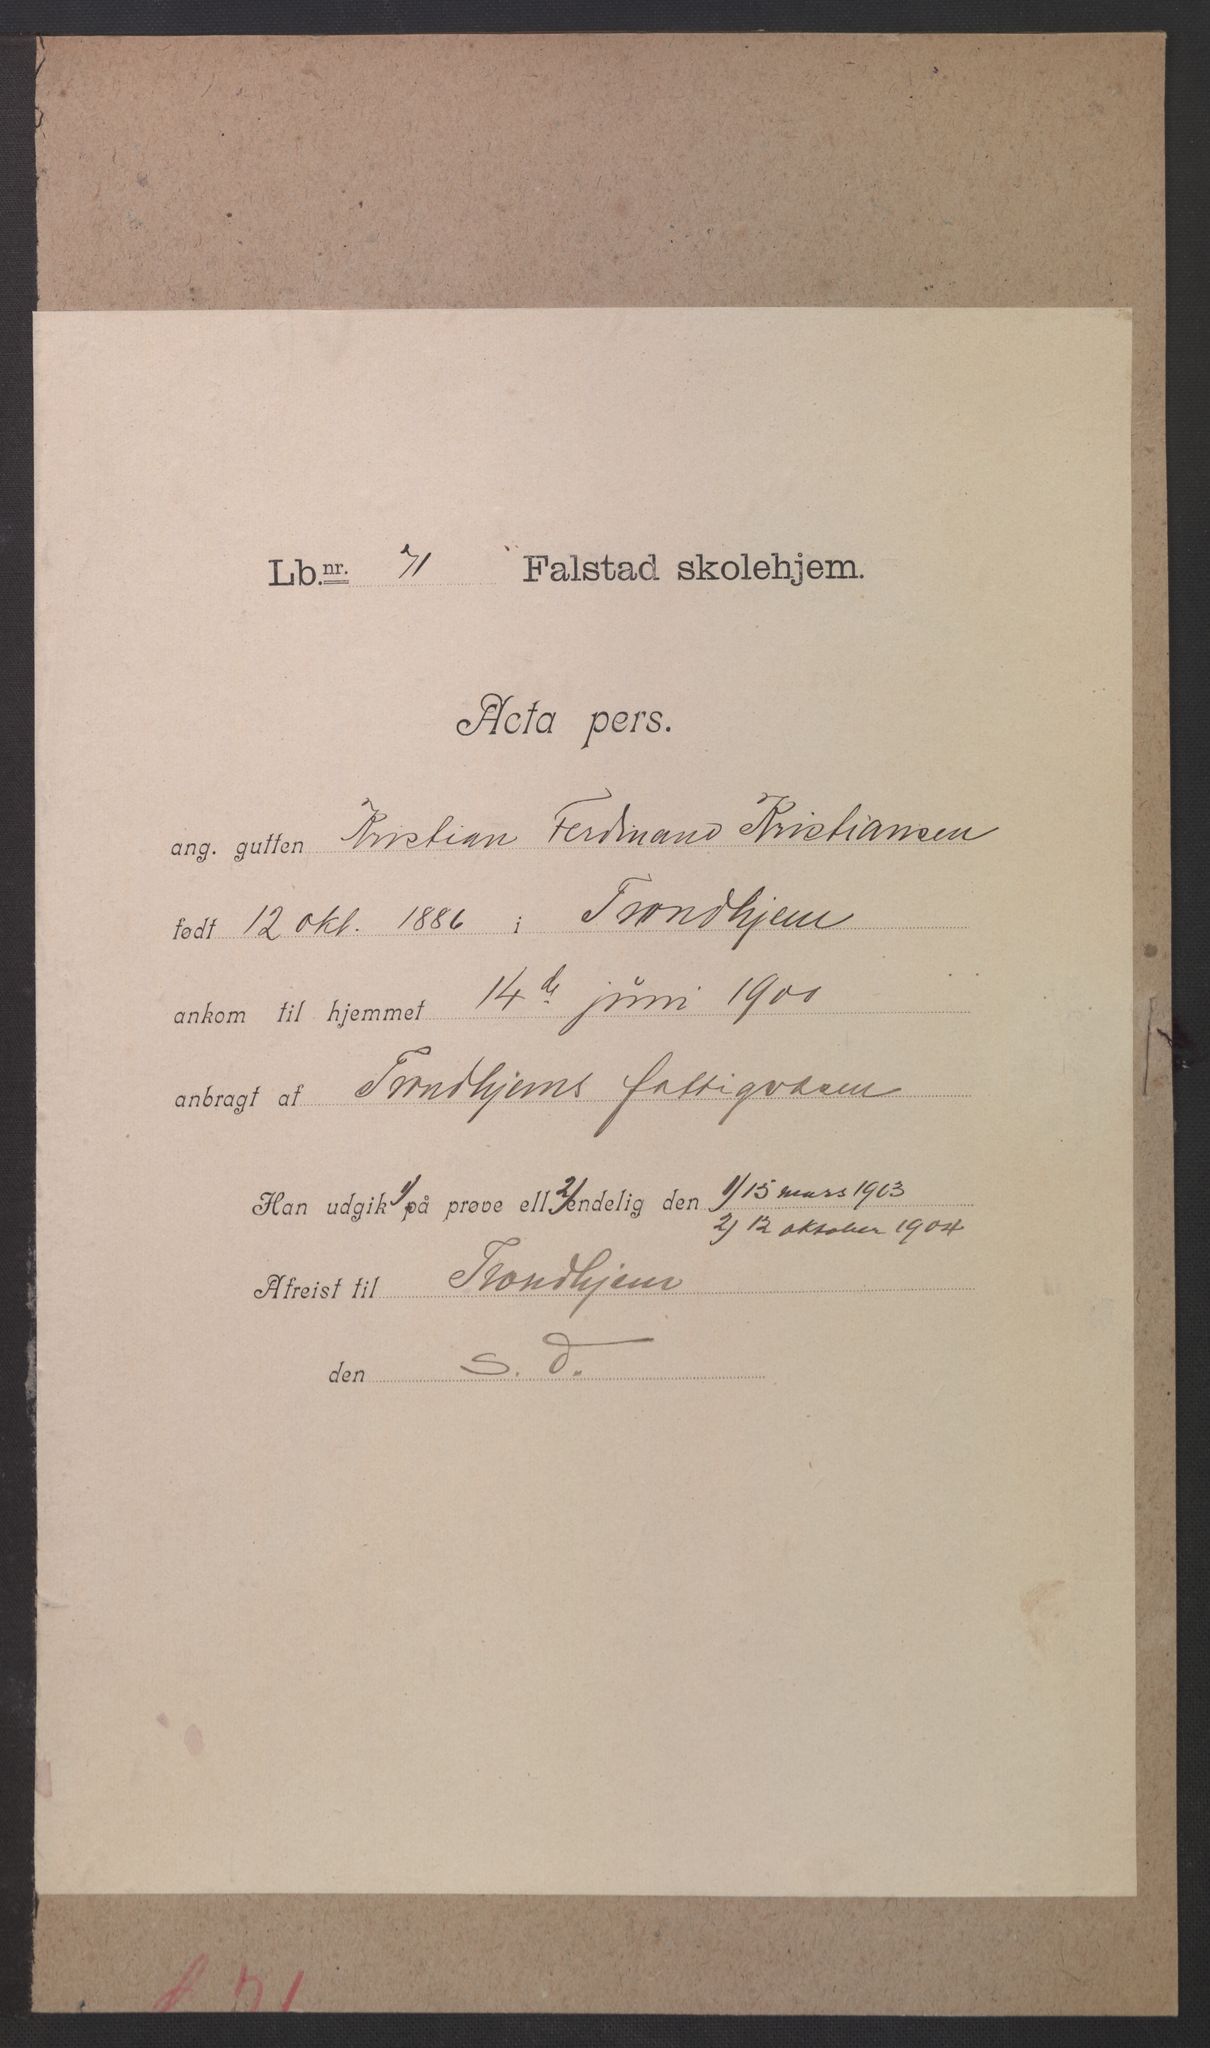 Lb.nr. 71 Falstad skolehjem.
Acta pers.
ang. gutten Kristian Ferdinand Kristiansen
født 12 okt. 1886 i Trondhjem
ankom til hjemmet 14de juni 1900
anbragt af Trondhjems fattigvæsen
Han udgik 1/ på prøve ell 2/ endelig den 1/ 15 mars 1903
2/ 12 oktober 1904
Afreist til Trondhjem
den s. d.
71